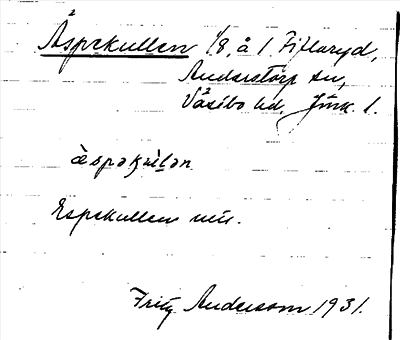 Äspekullen 1/8, å 1 Fiflaryd,
Anderstorp sn,
Västbo hd. Jönk. l.
Espekullen
Fritz Anderson 1931.